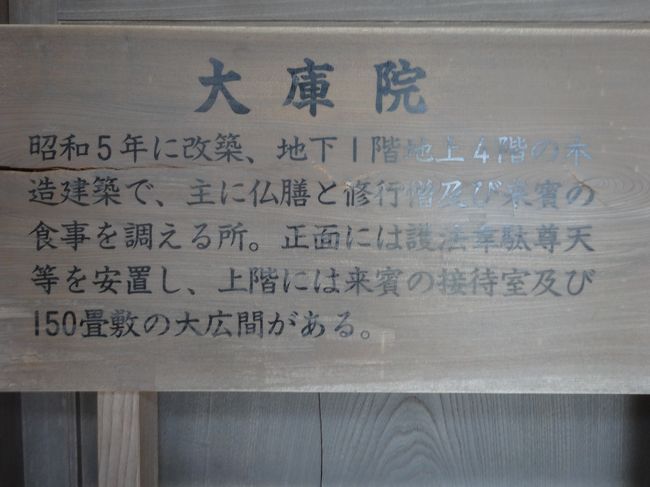 大庫院
昭和5年に改築、地下1階地上4階の木
造建築で、主に仏膳と修行僧及び来賓の
食事を調える所。正面には護法韋駄尊天
等を安置し、上階には来賓の接待室及び
150畳敷の大広間がある。